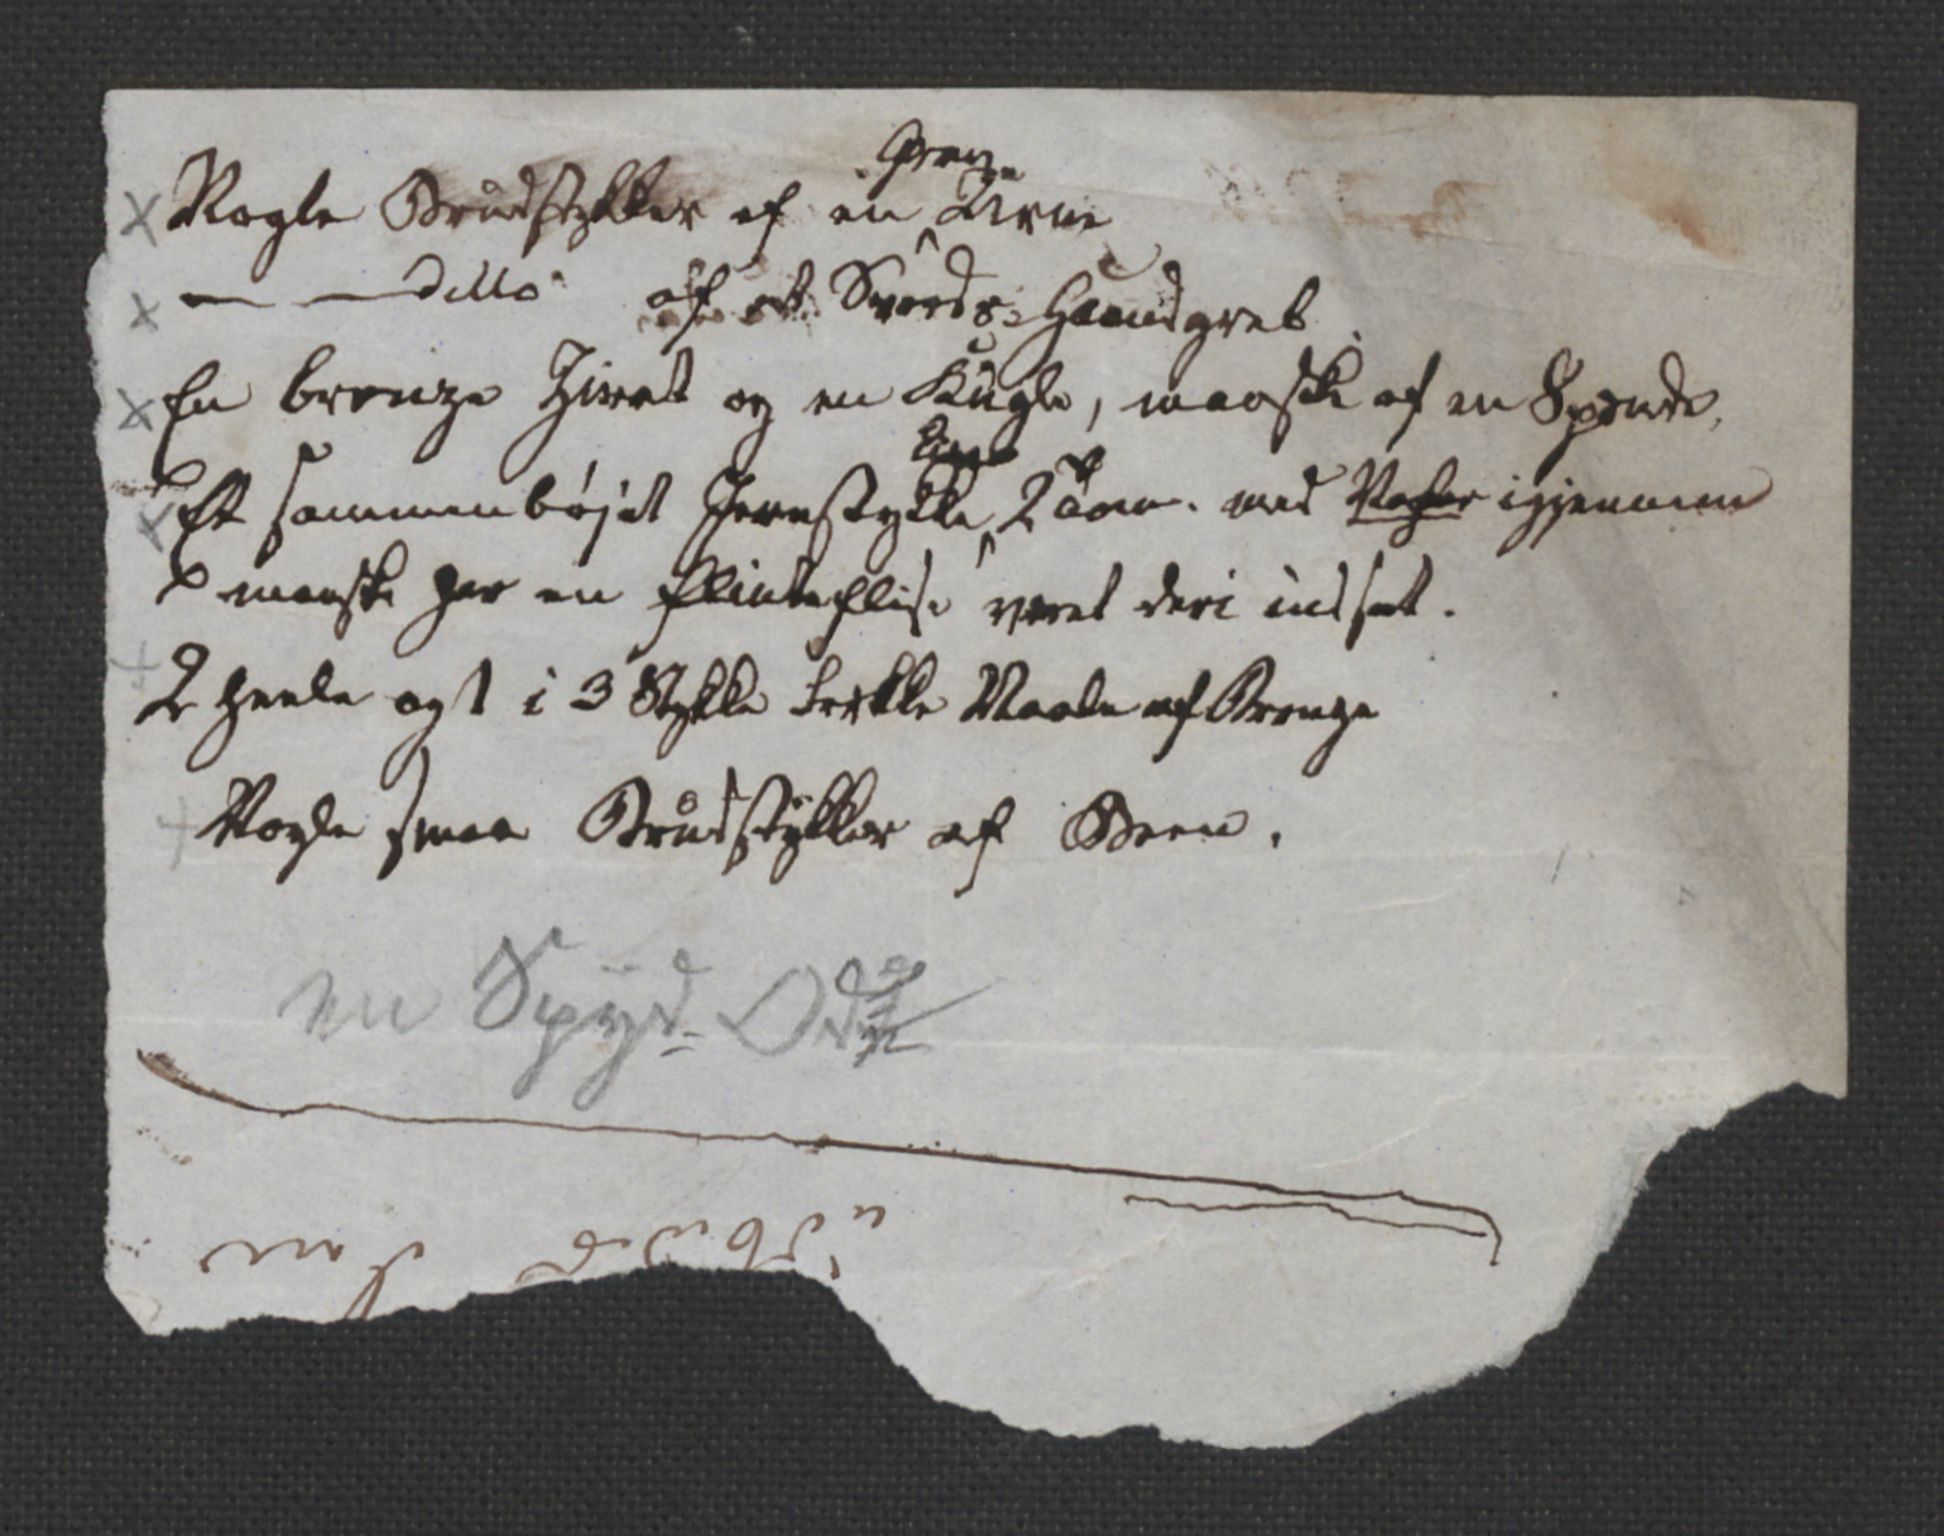 x Nogle Brudstykker af en Urne
x — — ditto af et Sværds Haandgreb
x En bronze Zirat og en Kugle, maaske af en Spænde,
x Et sammenböjet Jernstykke, 2 med igjennem
maaske har en flinteflise været deri indsat.
+ 2 heele og 1 i 3 Stykke Naale af Bronze
+ Nogle smaa Brudstykker af Been.
en Spÿd-Od